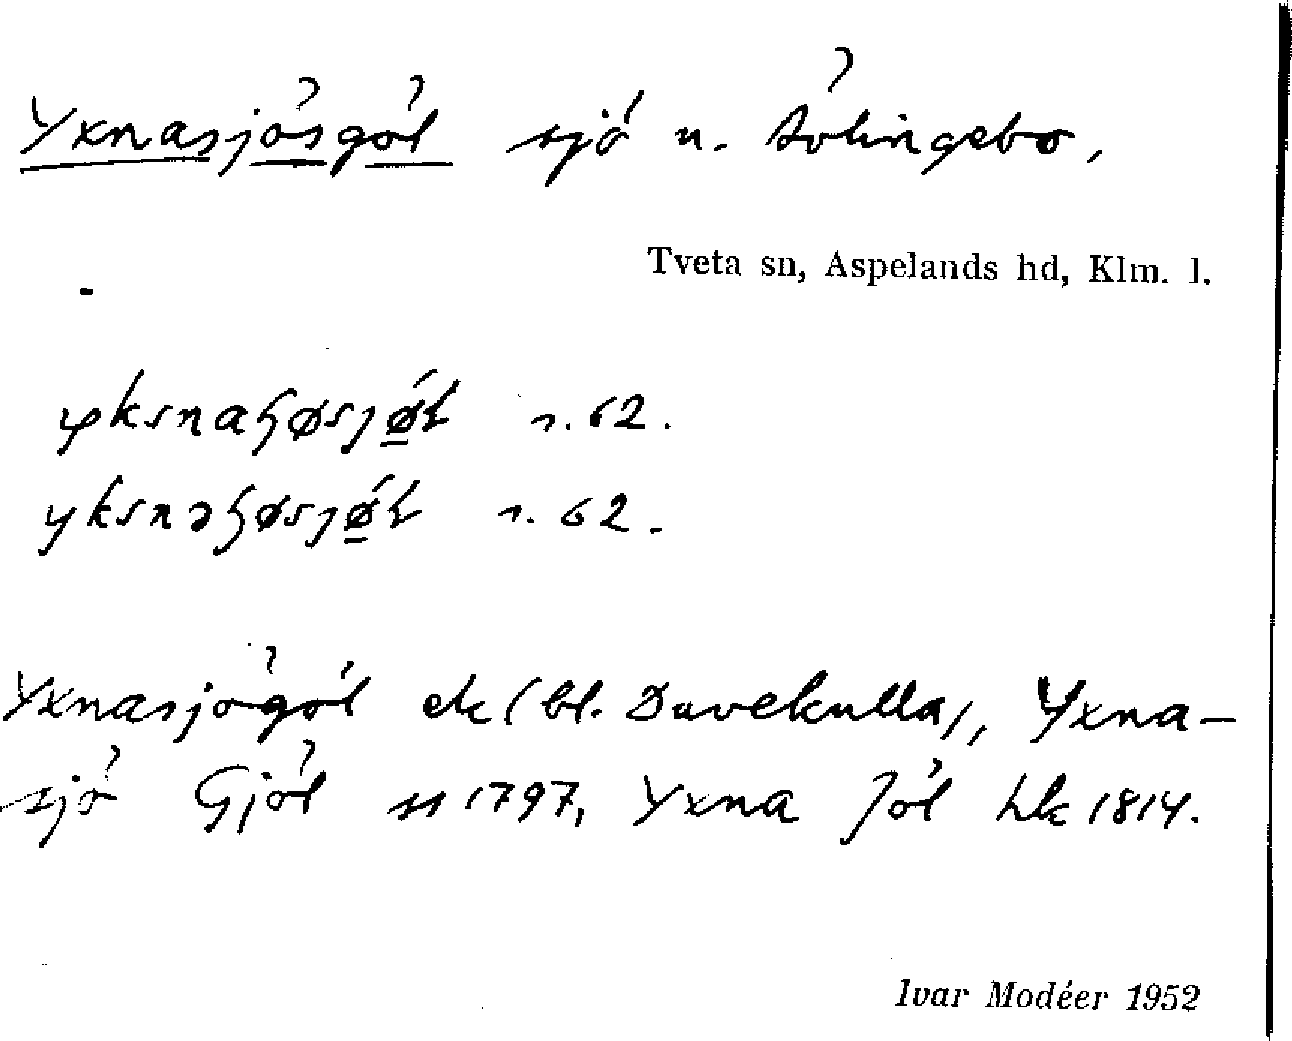 Yxnasjösgöl sjö n. Åvlingebo,
Tveta sn, Aspelands hd, Klm. l.
yksnaɧøsjǿ̱l s. 62.
yksnəɧøsjǿ̱l s. 62.
Yxnasjögöl ek (bl. Duvekulla), Yxna-
sjö Gjöl ss 1797, Yxna Jöl hk 1814.
Ivar Modéer 1952